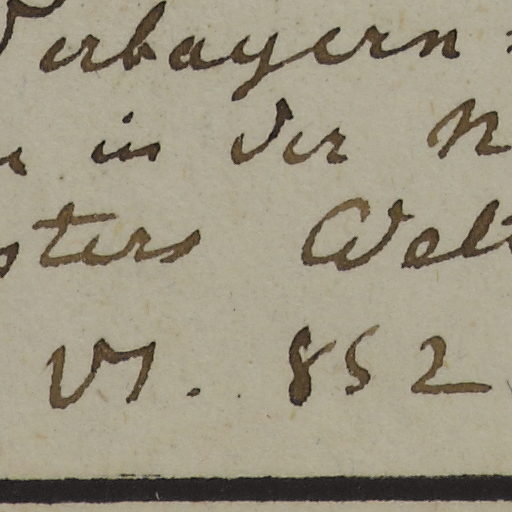 erbayern
in der N
sters Welt
VI. 852